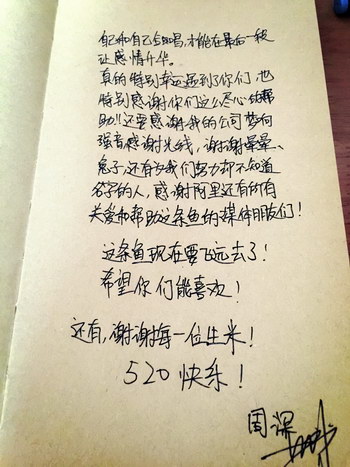 自己和自己合唱,才能在最后一段
让感情升华。
真的特别幸运遇到了你们,也
特别感谢你们这么尽心的帮
助!!还要感谢我的公司梦响
强音感谢光线,谢谢晕晕、
兔子,还有为我们努力却不知道
名字的人,感谢阿里还有所有
关爱和帮助这条鱼的媒体朋友们!
这条鱼现在要飞远去了!
希望你们能喜欢!
还有,谢谢每一位生米!
520快乐!
周深